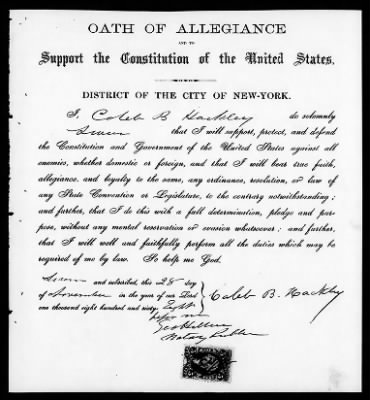 OATH OF ALLEGIANCE
AND TO
Support the Constitution of the United States.
DISTRICT OF THE CITY OF NEW-YORK.
I, Caleb B Hackley do solemnly
Swear that I will support, protect, and defend
the Constitution and Government of the United States against all
enemies, whether domestic or foreign, and that I will bear true faith,
allegiance, and loyalty to the same, any ordinance, resolution, or law of
any State Convention or Legislature, to the contrary notwithstanding;
and further, that I do this with a full determination, pledge and pur-
pose, without any mental reservation or evasion whatsoever: and further,
that I will well and faithfully perform all the duties which may be
required of me by law. So help me God.
Sworn and subscribed, this 28 day
of November in the year of our Lord
one thousand eight hundred and sixty Eight
Caleb B. Hackley
before me
Notary Public